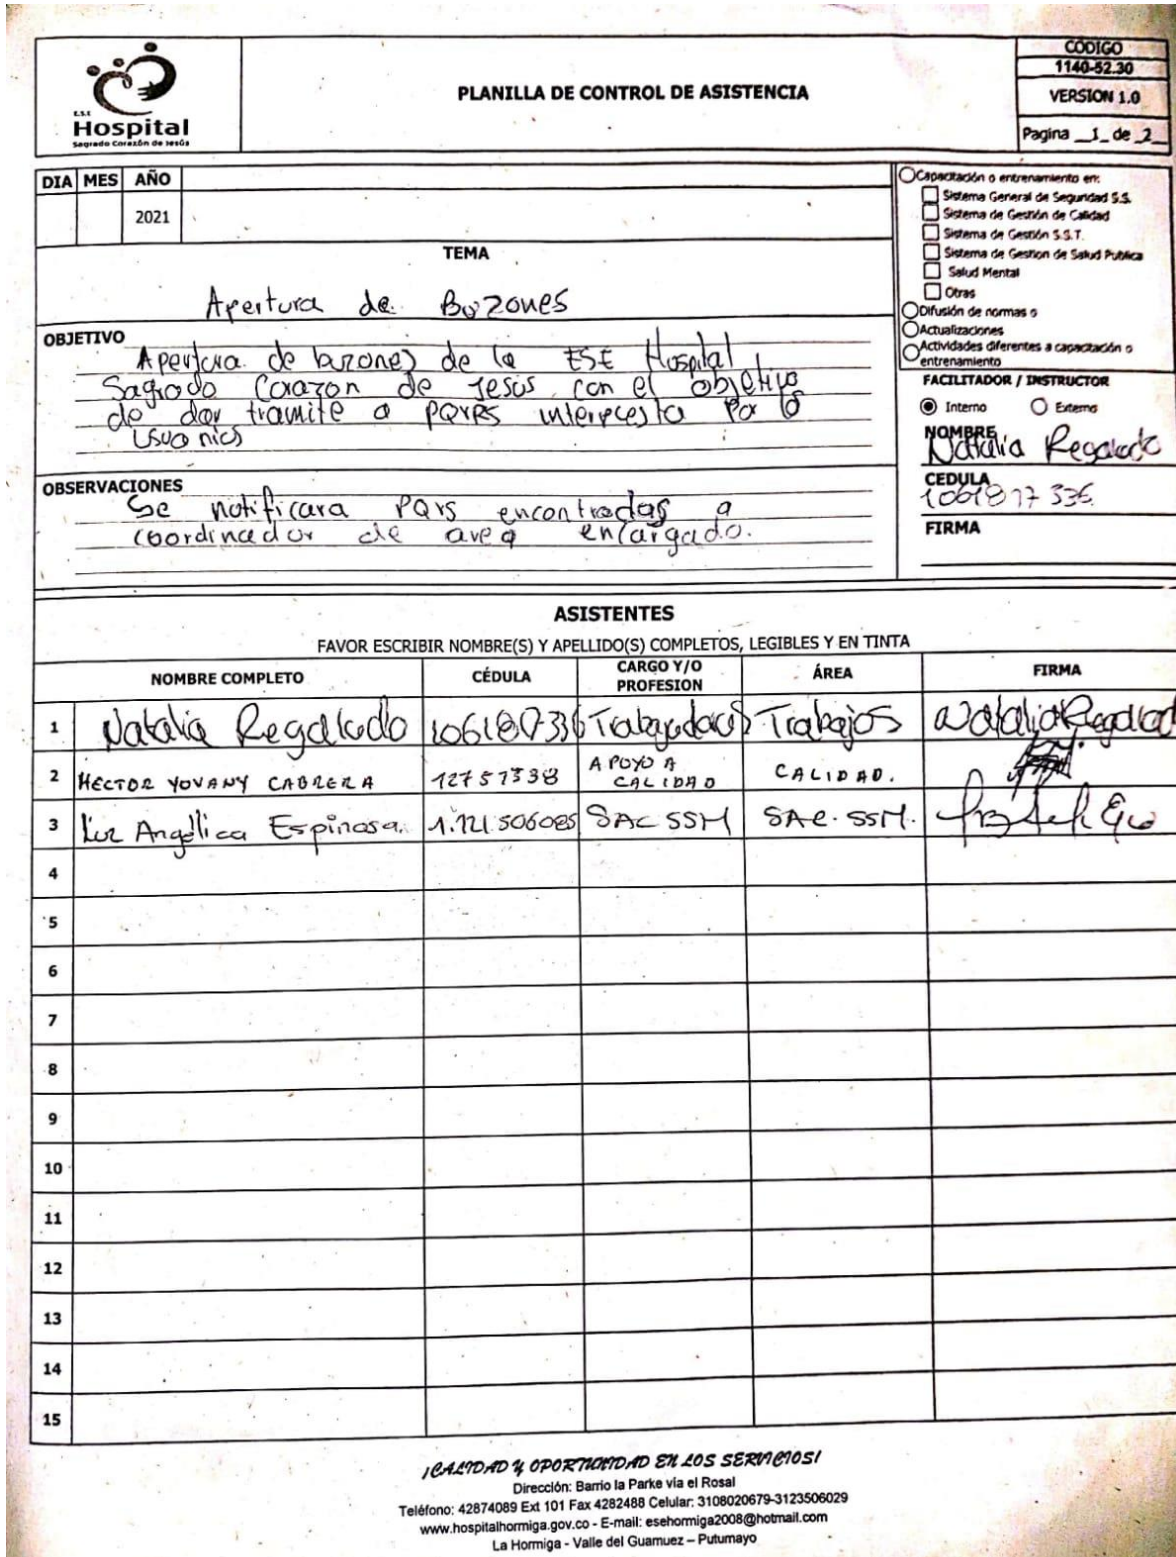 E.S.E
Hospital
Sagrado Corazón de Jesús
PLANILLA DE CONTROL DE ASISTENCIA
CÓDIGO
1140-52.30
VERSION 1.0
Pagina _1_ de _2_
DIA MES AÑO
2021
TEMA
Apertura de Buzones
OBJETIVO
Apertura de buzones de la ESE Hospital
Sagrado Corazon de Jesús con el objetivo
de dar tramite a PQRS interpuesta por
usuarios
OBSERVACIONES
Se notificara PQRS encontradas a
coordinador de area encargado.
Capacitación o entrenamiento en:
Sistema General de Seguridad S.S.
Sistema de Gestión de Calidad
Sistema de Gestión S.S.T.
Sistema de Gestion de Salud Publica
Salud Mental
Otras
Difusión de normas o
Actualizaciones
Actividades diferentes a capacitación o
entrenamiento
FACILITADOR / INSTRUCTOR
Interno Externo
NOMBRE Natalia Regalado
CEDULA
1061817336
FIRMA
ASISTENTES
FAVOR ESCRIBIR NOMBRE(S) Y APELLIDO(S) COMPLETOS, LEGIBLES Y EN TINTA
NOMBRE COMPLETO CÉDULA CARGO Y/O PROFESION ÁREA FIRMA
1 Natalia Regalado Trabajos Natalia Regalado
2 HECTOR YOVANY CABRERA 12751338 APOYO A CALIDAD CALIDAD.
3 Luz Angélica Espinosa. 1.121.506085 SAC SSM SAC. SSM.
4
5
6
7
8
9
10
11
12
13
14
15
¡CALIDAD Y OPORTUNIDAD EN LOS SERVICIOS!
Dirección: Barrio la Parke via el Rosal
Teléfono: 42874089 Ext 101 Fax 4282488 Celular: 3108020679-3123506029
www.hospitalhormiga.gov.co - E-mail: esehormiga2008@hotmail.com
La Hormiga - Valle del Guamuez – Putumayo